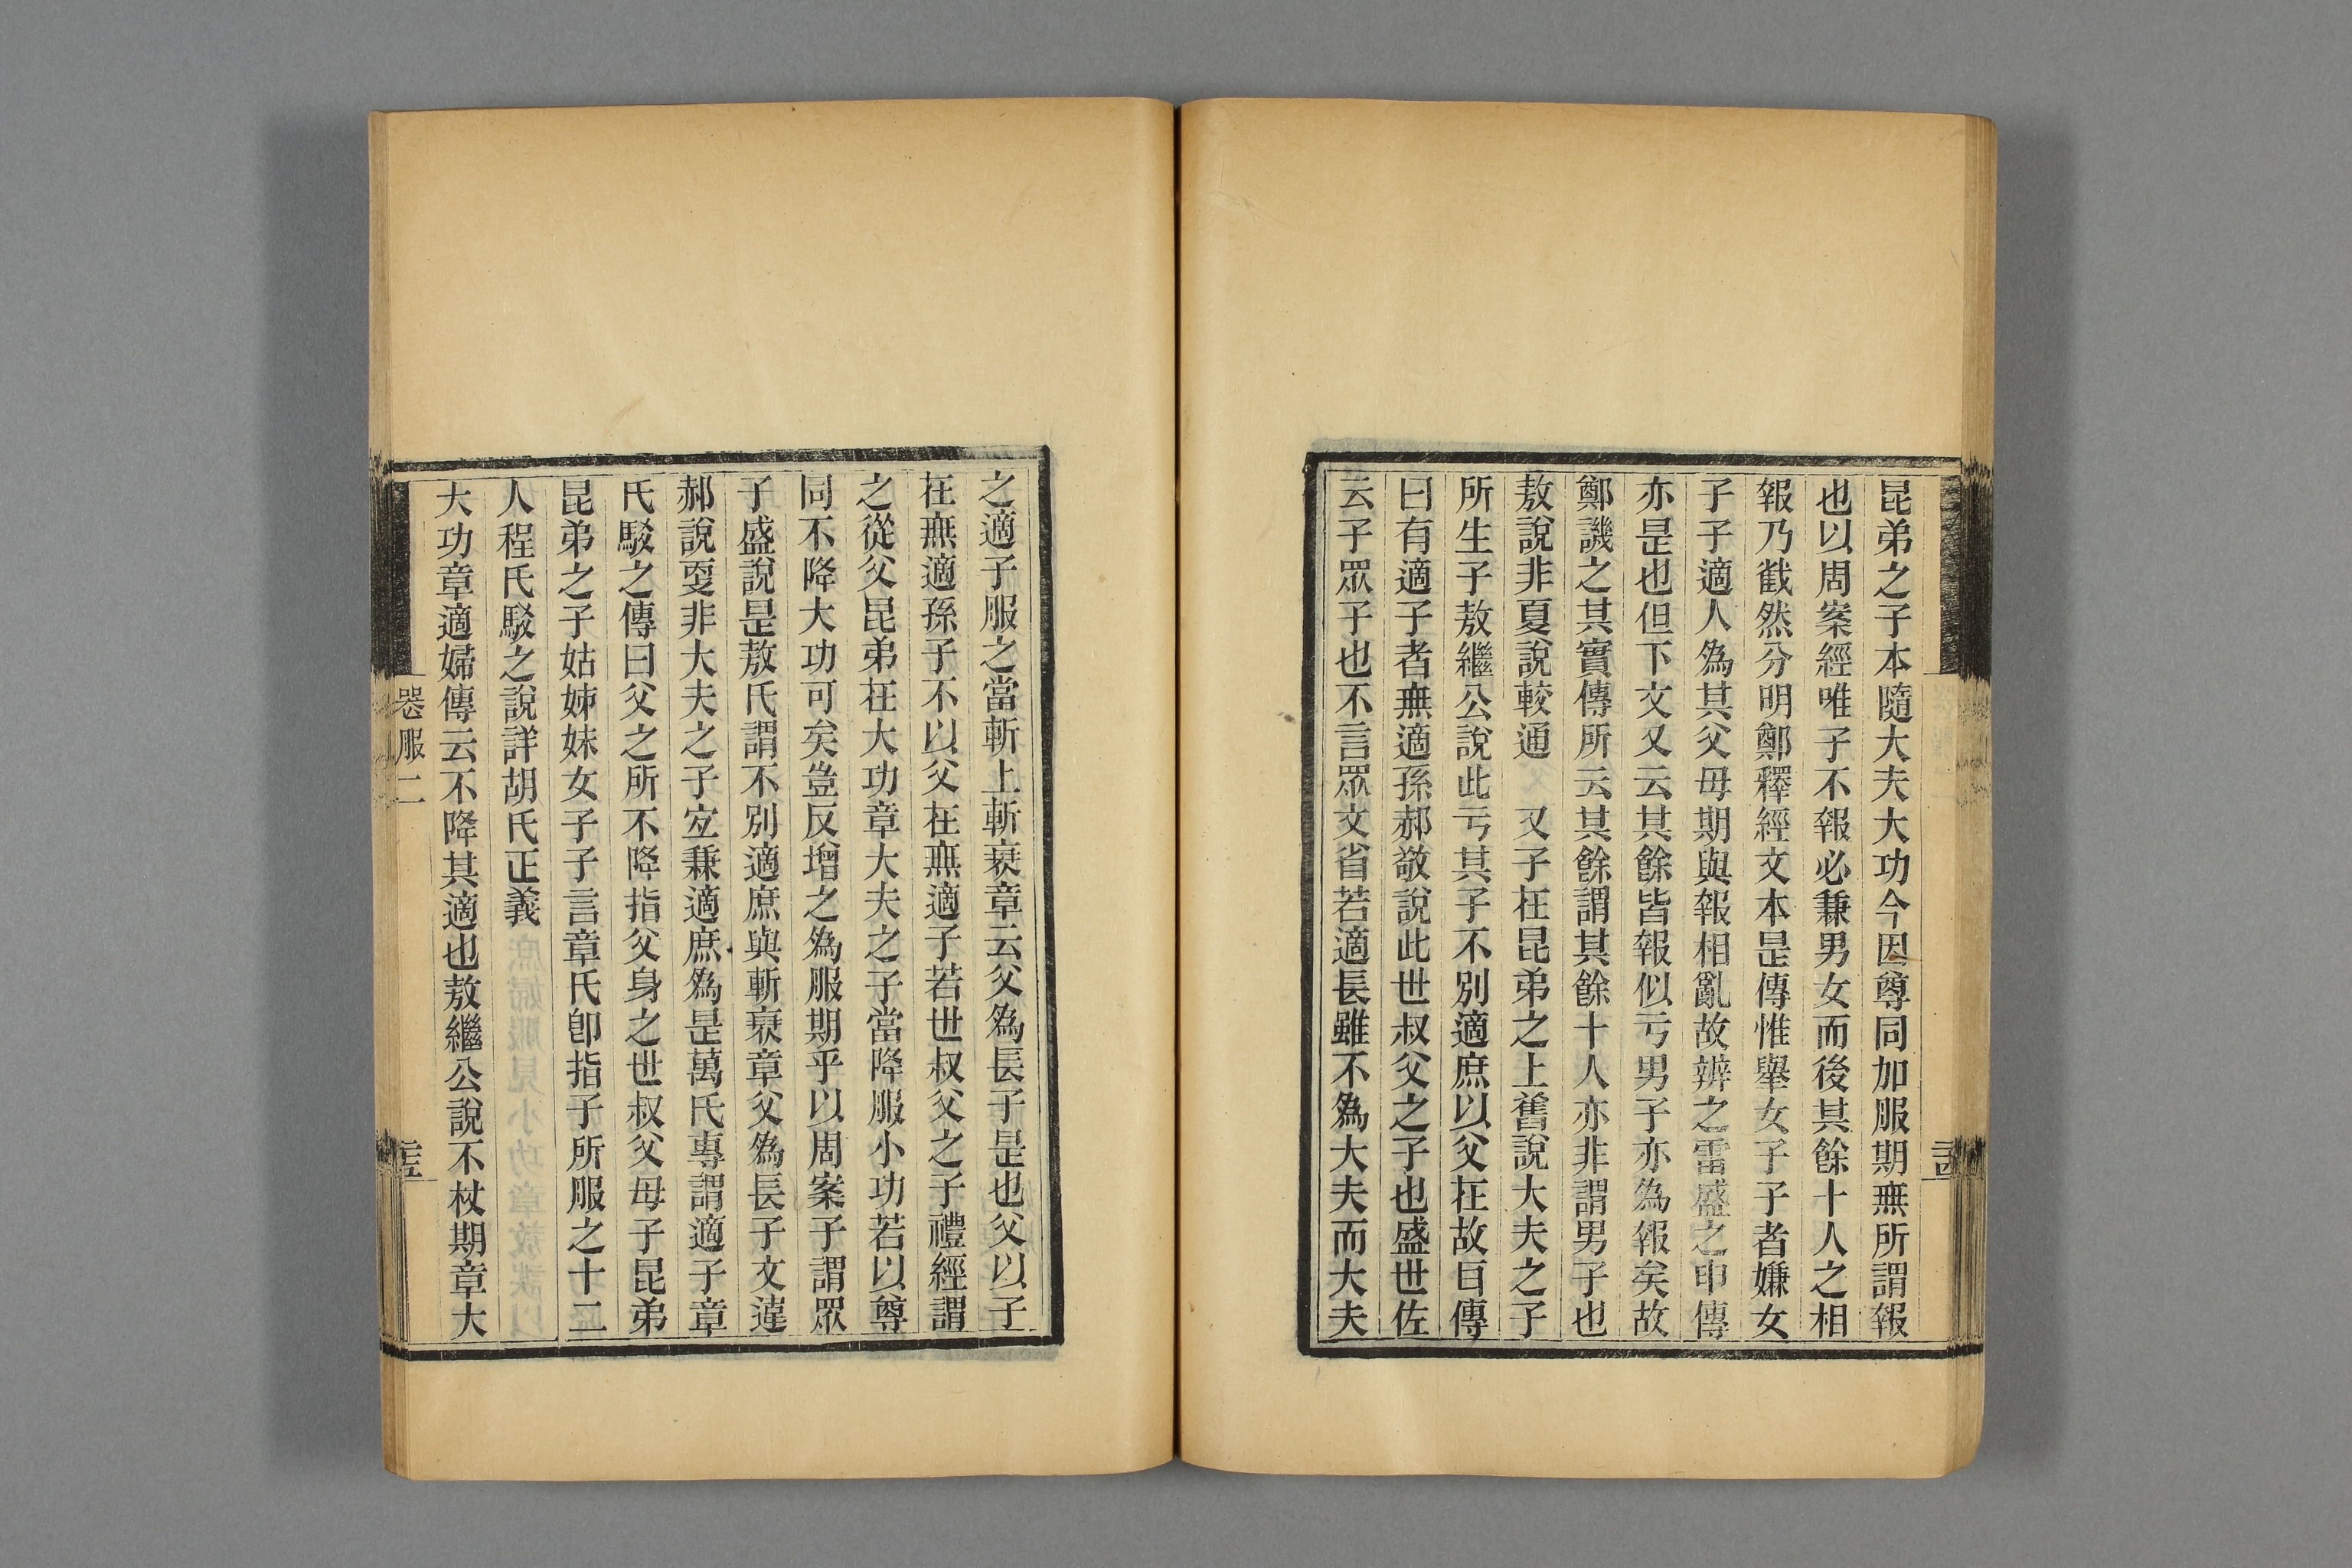 昆弟之子本隨大夫大功今因尊同加服期無所謂報
也以周案經唯子不報必兼男女而後其餘十人之相
報乃截然分明鄭釋經文本是傳惟舉女子子者嫌女
子子適人為其父母期與報相亂故辨之雷盛之申傳
亦是也但下文又云其餘皆報似亏男子亦為報矣故
鄭譏之其實傳所云其餘謂其餘十人亦非謂男子也
敖說非夏說較通　又子在昆弟之上舊說大夫之子
所生子敖繼公說此亏其子不別適庶以父在故自傳
曰有適子者無適孫郝敬說此世叔父之子也盛世佐
云子眾子也不言眾文省若適長雖不為大夫而大夫
之適子服之當斬上斬衰章云父為長子是也父以子
在無適孫子不以父在無適子若世叔父之子禮經謂
之從父昆弟在大功章大夫之子當降服小功若以尊
同不降大功可矣豈反增之為服期乎以周案子謂眾
子盛說是敖氏謂不別適庶與斬衰章父為長子文違
郝說更非大夫之子宐兼適庶為是萬氏專謂適子章
氏駁之傳曰父之所不降指父身之世叔父母子昆弟
昆弟之子姑姊妹女子子言章氏卽指子所服之十二
人程氏駁之說詳胡氏正義
大功章適婦傳云不降其適也敖繼公說不杖期章大
喪服二